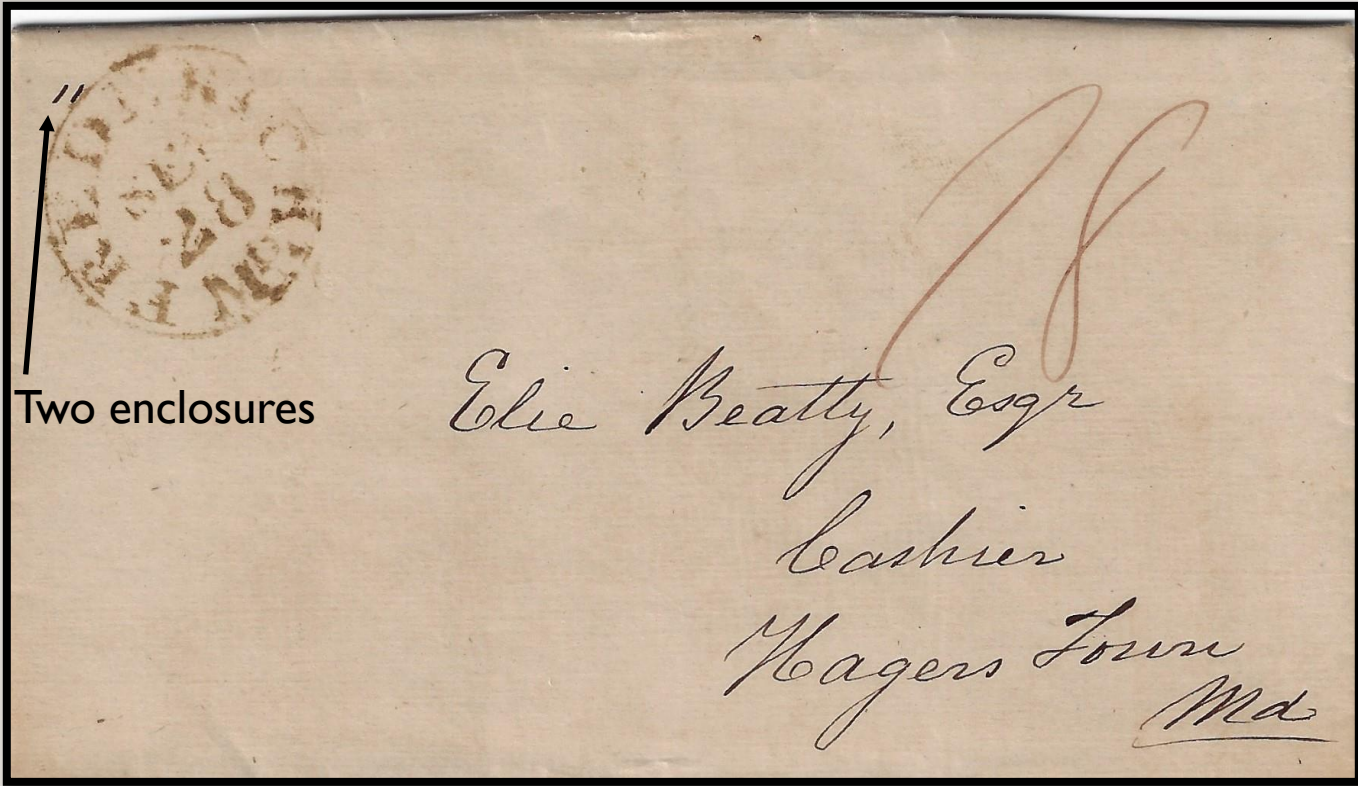 "
FREDERICK Md
SEP
28
18
Two enclosures
Elie Beatty, Esqr
Cashier
Hagers Town
Md